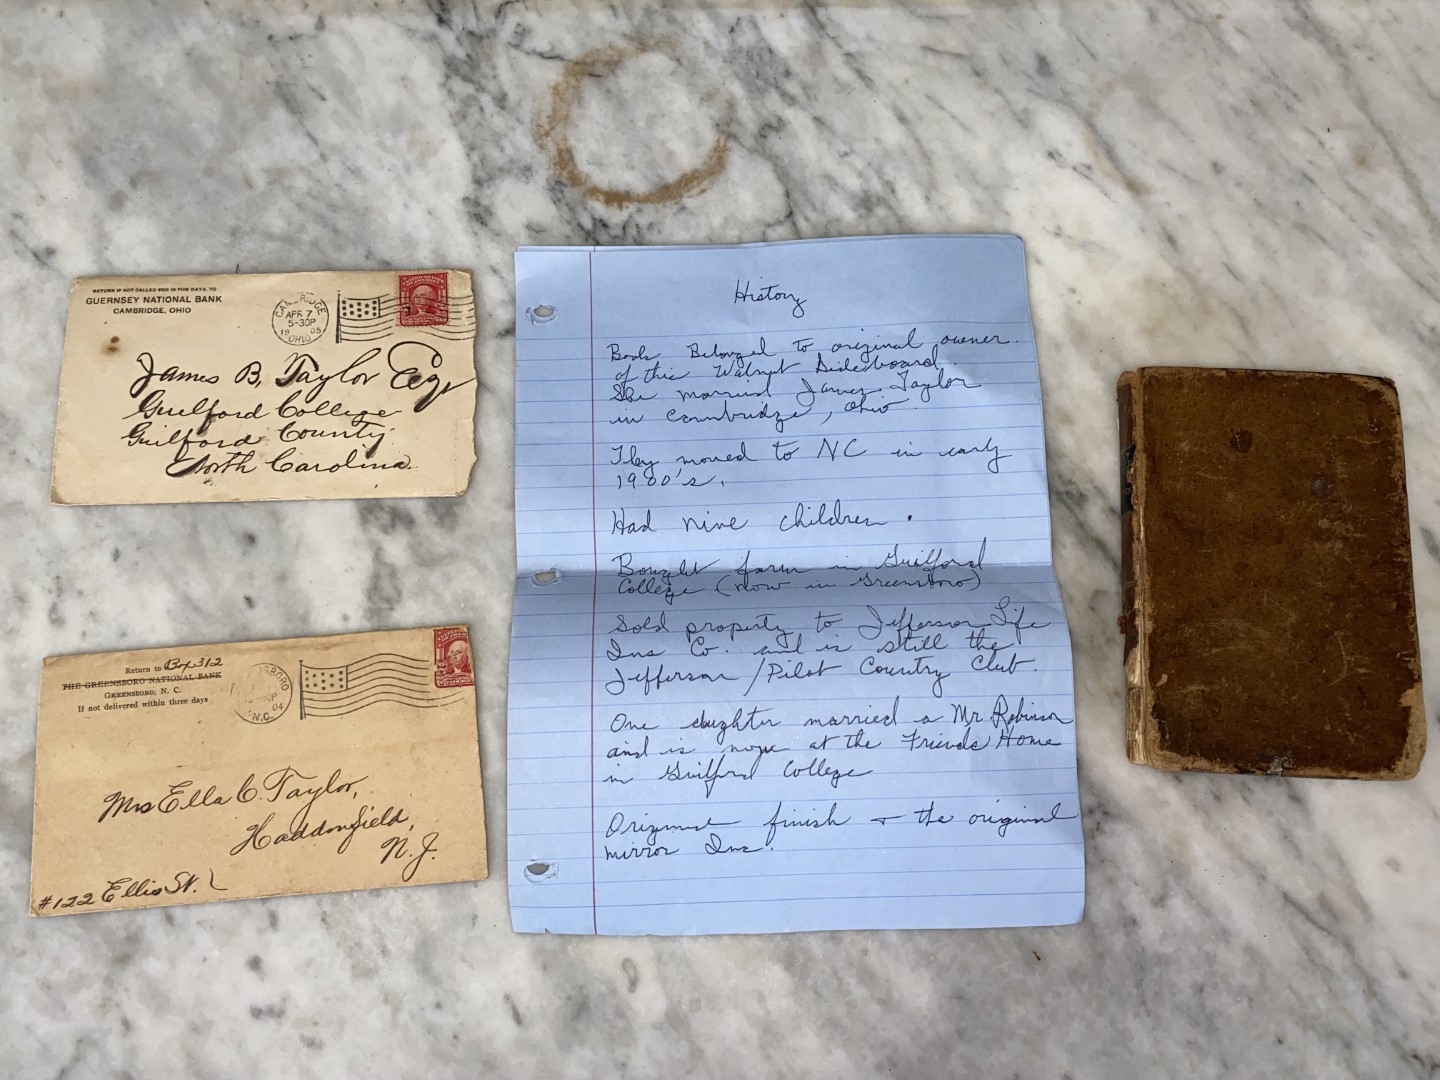 RETURN IF NOT CALLED FOR IN FIVE DAYS, TO
GUERNSEY NATIONAL BANK
CAMBRIDGE, OHIO
CAMBRIDGE
APR 7
5-30P
1905
OHIO
James B. Taylor Esqr
Guilford College
Guilford County
North Carolina.
Return to Box 312
THE GREENSBORO NATIONAL BANK
GREENSBORO, N. C.
If not delivered within three days
N.C.
04
Mrs Ella C. Taylor,
Haddonfield,
N. J.
#122 Ellis St.
History
Book Belonged to original owner.
of this Walnut Sideboard.
She married James Taylor
in Cambridge, Ohio
They moved to NC in early
1900's.
Had nine children.
Bought farm in Guilford
College (now in Greensboro)
Sold property to Jefferson Life
Ins Co. and is still the
Jefferson/Pilot Country Club.
One daughter married a Mr. Robinson
and is now at the Friends Home
in Guilford College
Original finish + the original
mirror